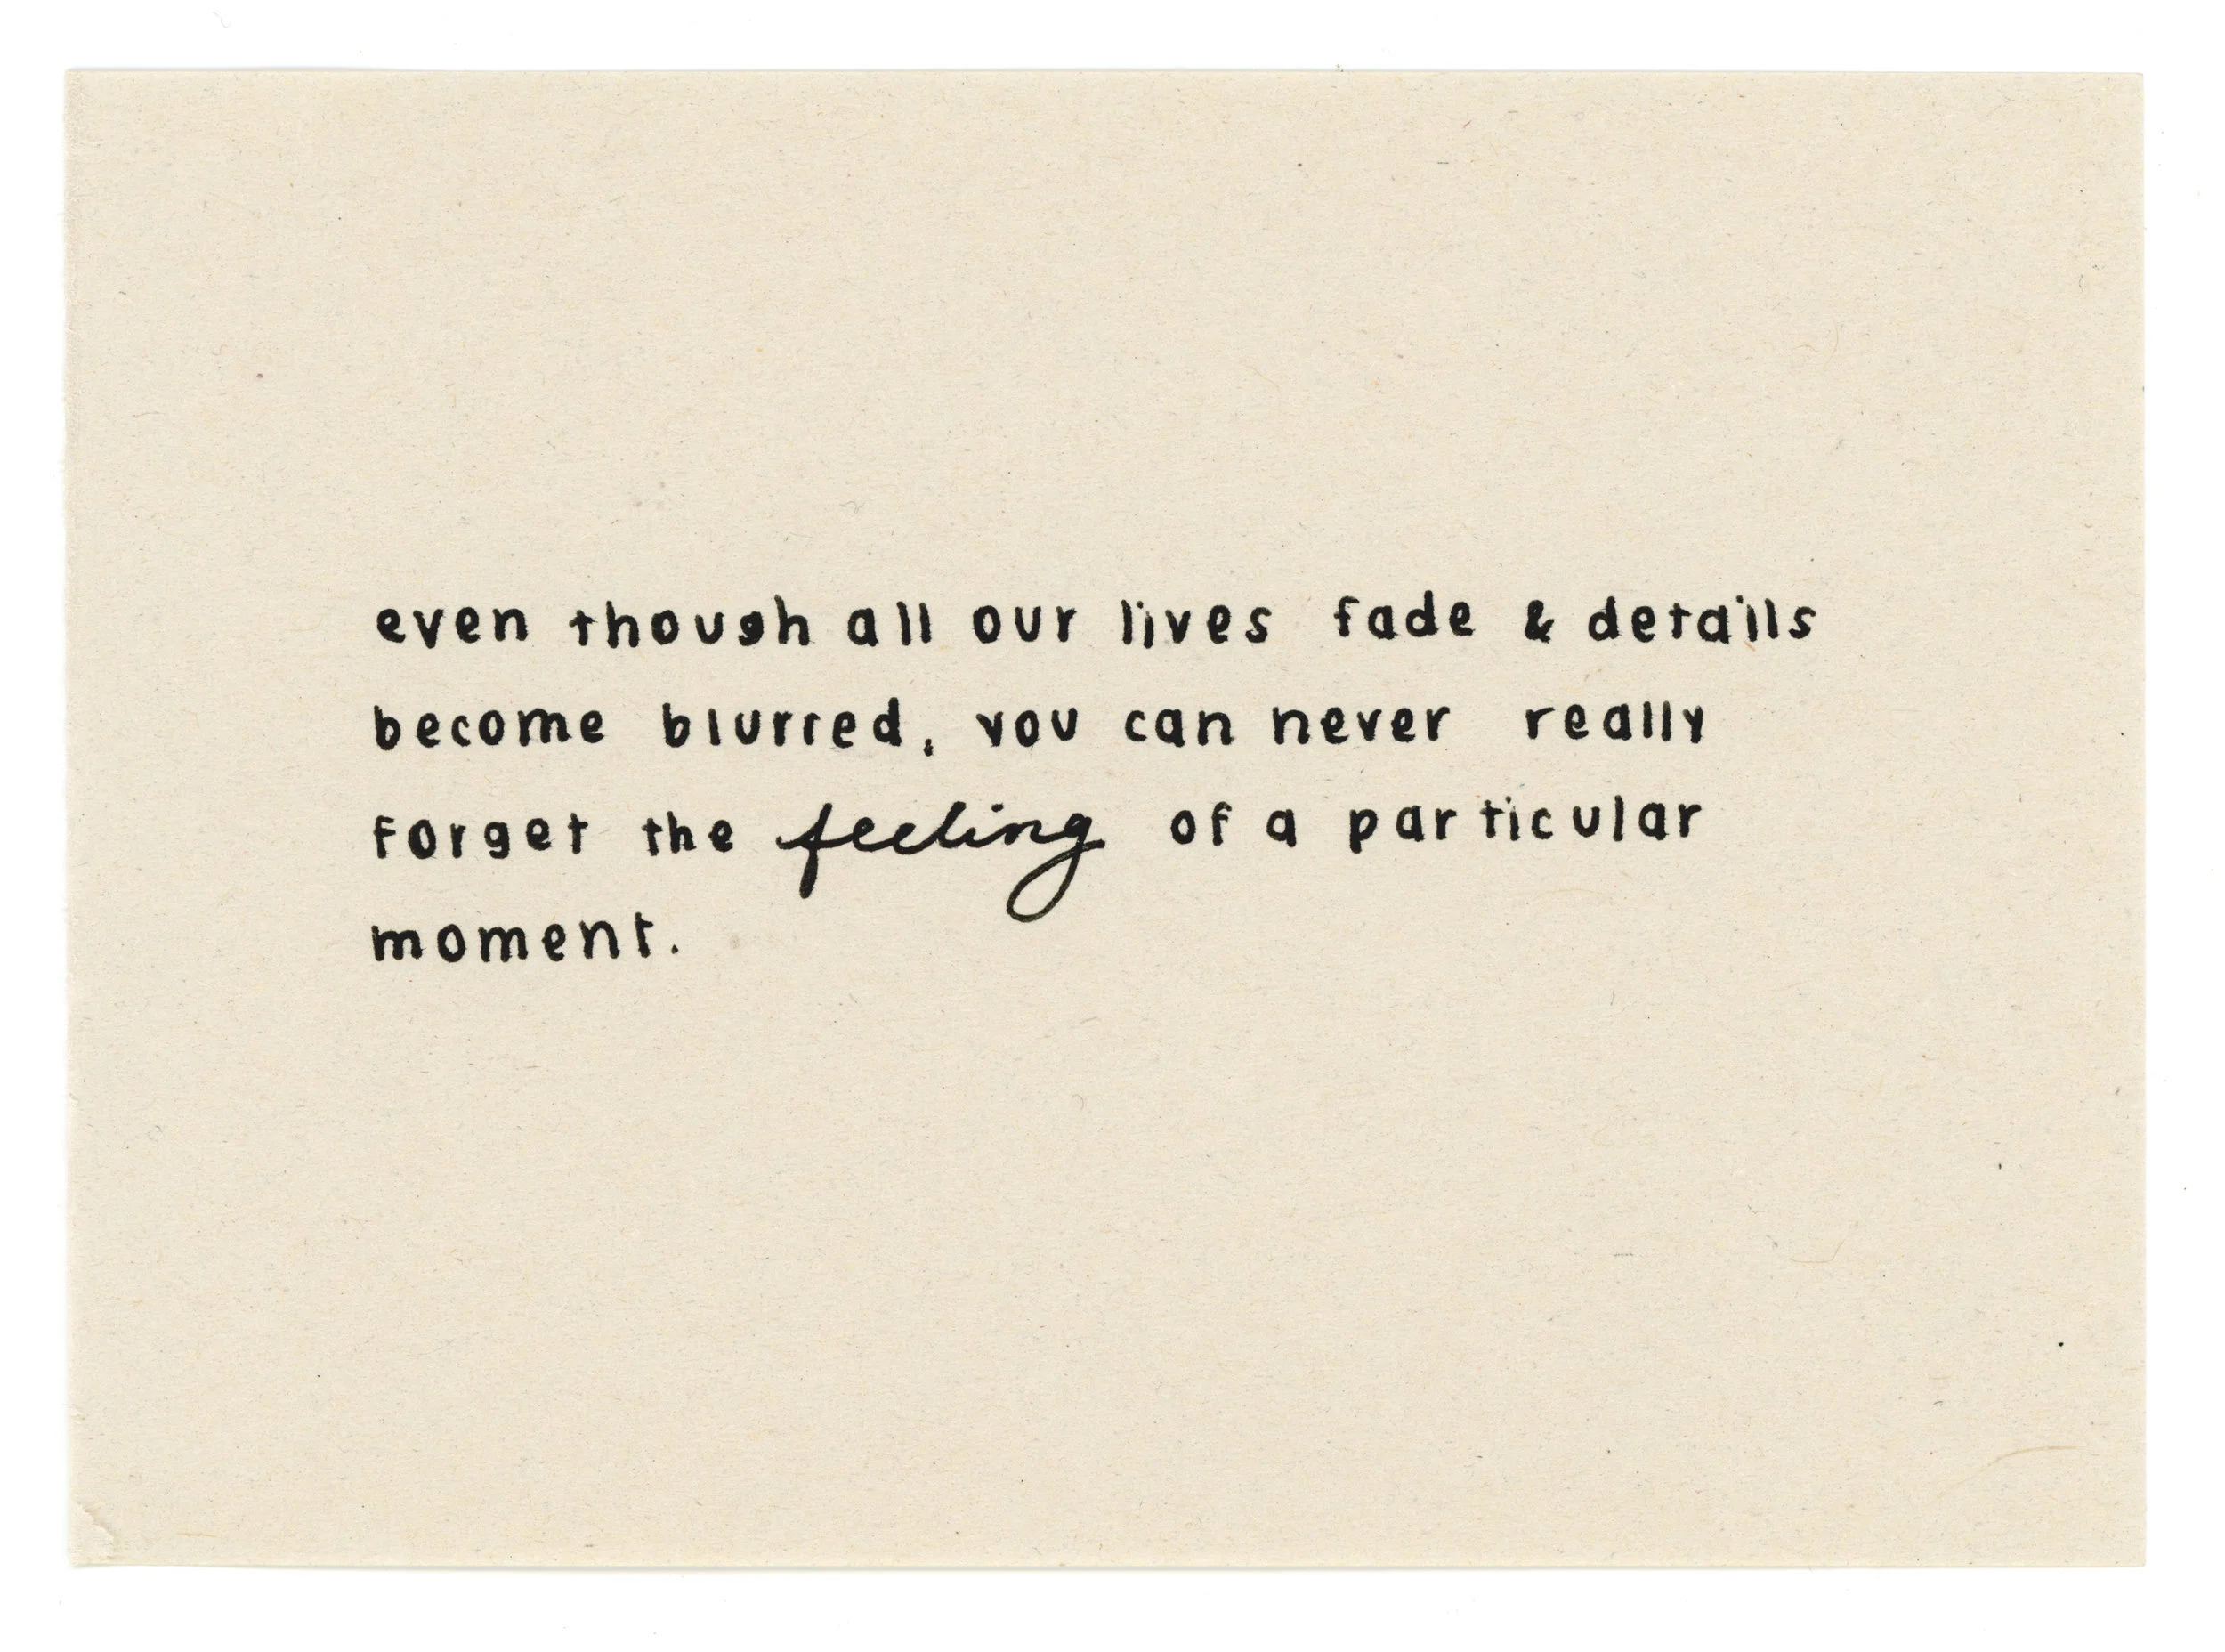 even though all our lives fade & details
become blurred, you can never really
forget the feeling of a particular
moment.